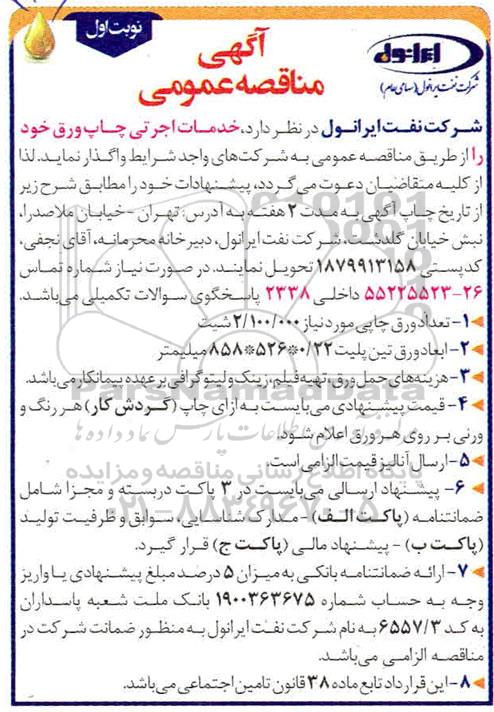 نوبت اول
ایرانول
شرکت نفت ایرانول (سهامی عام)
آگهی
مناقصه عمومی
شرکت نفت ایرانول در نظر دارد، خدمات اجرتی چاپ ورق خود
را از طریق مناقصه عمومی به شرکت‌های واجد شرایط واگذار نماید. لذا
از کلیه متقاضیان دعوت می‌گردد، پیشنهادات خود را مطابق شرح زیر
از تاریخ چاپ آگهی به مدت ۲ هفته به آدرس: تهران - خیابان ملاصدرا،
نبش خیابان گلدشت، شرکت نفت ایرانول، دبیرخانه محرمانه، آقای نجفی،
کدپستی ۱۸۷۹۹۱۳۱۵۸ تحویل نمایند. در صورت نیاز شماره تماس
۲۶-۵۵۲۲۵۵۲۳ داخلی ۲۳۳۸ پاسخگوی سوالات تکمیلی می‌باشد.
۱- تعداد ورق چاپی مورد نیاز ۲/۱۰۰/۰۰۰ شیت
۲- ابعاد ورق تین پلیت ۰/۲۲*۵۲۶*۸۵۸ میلیمتر
۳- هزینه‌های حمل ورق، تهیه فیلم، زینک و لیتوگرافی بر عهده پیمانکار می‌باشد.
۴- قیمت پیشنهادی می‌بایست به ازای چاپ (گردش کار) هر رنگ و
ورنی بر روی هر ورق اعلام شود.
۵- ارسال آنالیز قیمت الزامی است.
۶- پیشنهاد ارسالی می‌بایست در ۳ پاکت دربسته و مجزا شامل
ضمانتنامه (پاکت الف) - مدارک شناسایی، سوابق و ظرفیت تولید
(پاکت ب) - پیشنهاد مالی (پاکت ج) قرار گیرد.
۷- ارائه ضمانتنامه بانکی به میزان ۵ درصد مبلغ پیشنهادی یا واریز
وجه به حساب شماره ۱۹۰۰۳۶۳۶۷۵ بانک ملت شعبه پاسداران
به کد ۶۵۵۷/۳ به نام شرکت نفت ایرانول به منظور ضمانت شرکت در
مناقصه الزامی می‌باشد.
۸- این قرارداد تابع ماده ۳۸ قانون تامین اجتماعی می‌باشد.
ParsNamadData.com
پایگاه اطلاع رسانی مناقصه و مزایده
۰۲۱-۸۸۳۴۹۶۷۰-۵